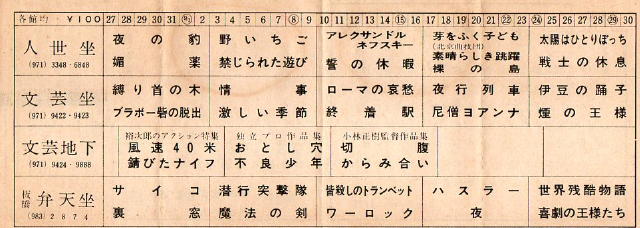 各館均一 ¥100 27 28 29 30 31 ㊗ 2 3 4 5 6 7 ⑧ 9 10 11 12 13 14 ⑮ 16 17 18 19 20 21 ㉒ 23 ㉔ 25 26 27 28 ㉙ 30
人世坐
(971) 3348・6848
夜の豹
媚薬
野いちご
禁じられた遊び
アレクサンドル
ネフスキー
誓の休暇
芽をふく子ども
(北京曲技団)
素晴らしき跳躍
裸の島
太陽はひとりぼっち
戦士の休息
文芸坐
(971) 9422・9423
縛り首の木
ブラボー砦の脱出
情事
激しい季節
ローマの哀愁
終着駅
夜行列車
尼僧ヨアンナ
伊豆の踊子
煙の王様
文芸地下
(971) 9424・9888
裕次郎のアクション特集
風速40米
錆びたナイフ
独立プロ作品集
おとし穴
不良少年
小林正樹監督作品集
切腹
からみ合い
板橋 弁天坐
(983) 2874
サイコ
裏窓
潜行突撃隊
魔法の剣
皆殺しのトランペット
ワーロック
ハスラー
夜
世界残酷物語
喜劇の王様たち